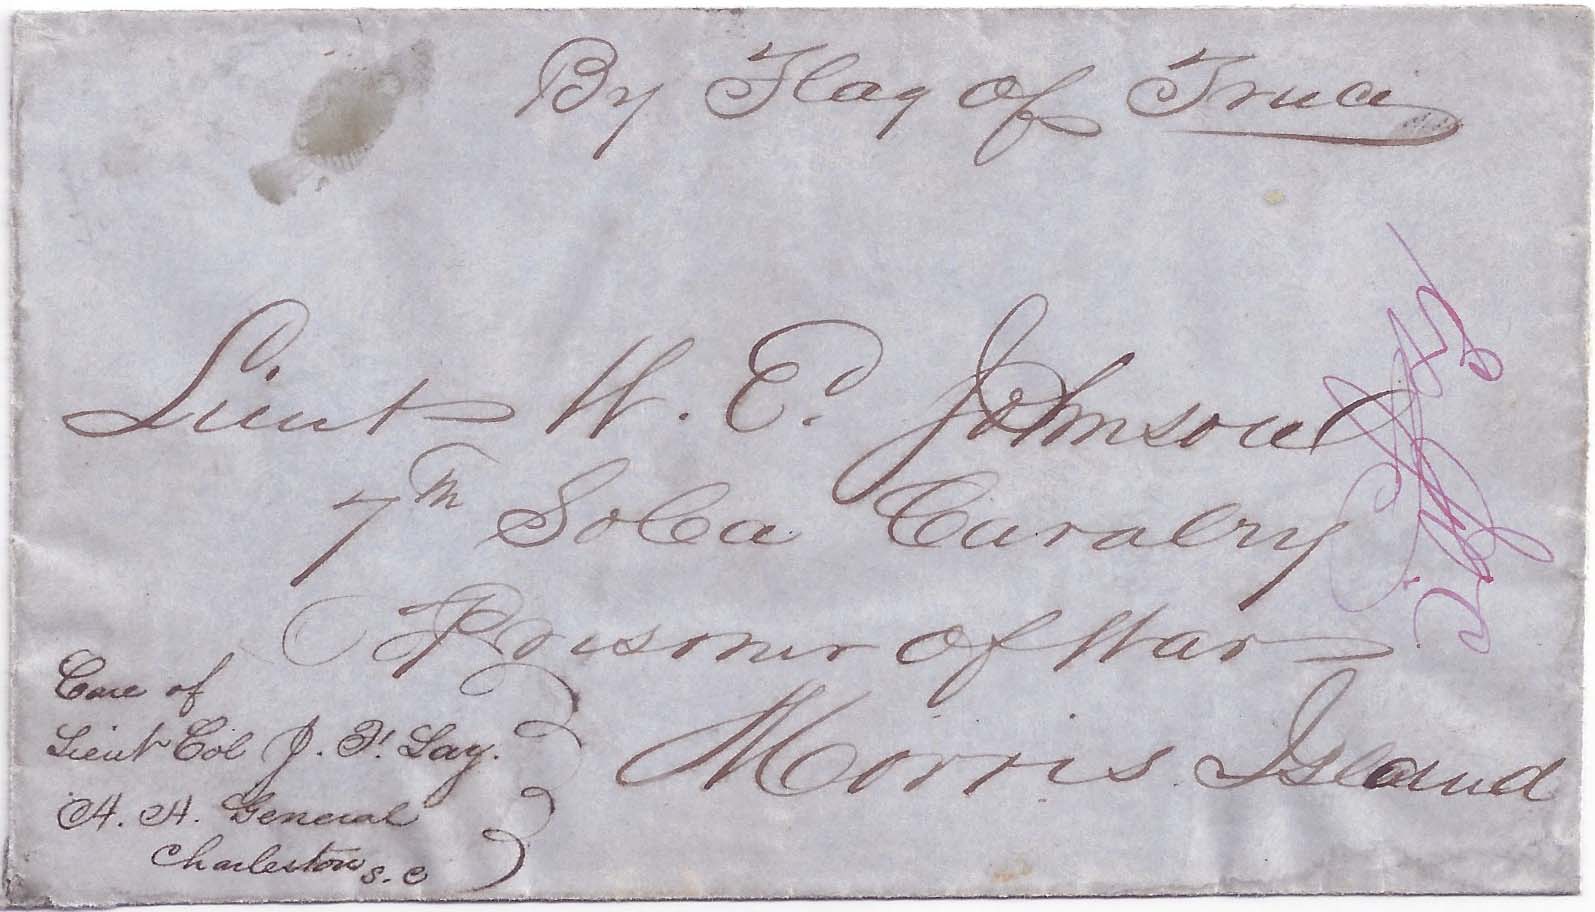 By Flag of Truce
Lieut W. E. Johnson
7th So Ca Cavalry
Prisoner of War
Morris Island
Care of
Lieut Col J. F. Lay.
A. A. General
Charleston S. C